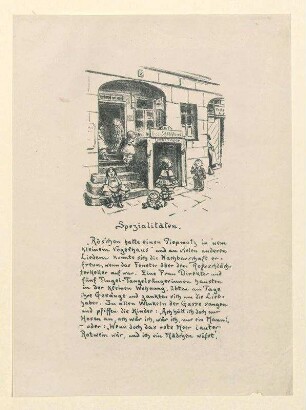 Spezialitäten.
„Röschen hatte einen Piepmatz in nem
kleinem Vogelhaus" und an vielen anderen
Liedern konnte sich die Nachbarschaft er-
freuen, wenn das Fenster über dem Roßschläch-
terkeller auf war. Eine Frau Direktor und
fünf Tingel-Tangelsängerinnen hausten
in der kleinen Wohnung, übten am Tage
ihre Gesänge und zankten sich um die Lieb-
haber. In allen Winkeln der Gasse sangen
und pfiffen die Kinder: „Ach hätt ich doch nur
Haare an, ach wär ich, wär ich, nur ein Mann!"
– oder: „Wenn doch das rote Meer lauter
Rotwein wär, und ich ein Mädchen wüßt,